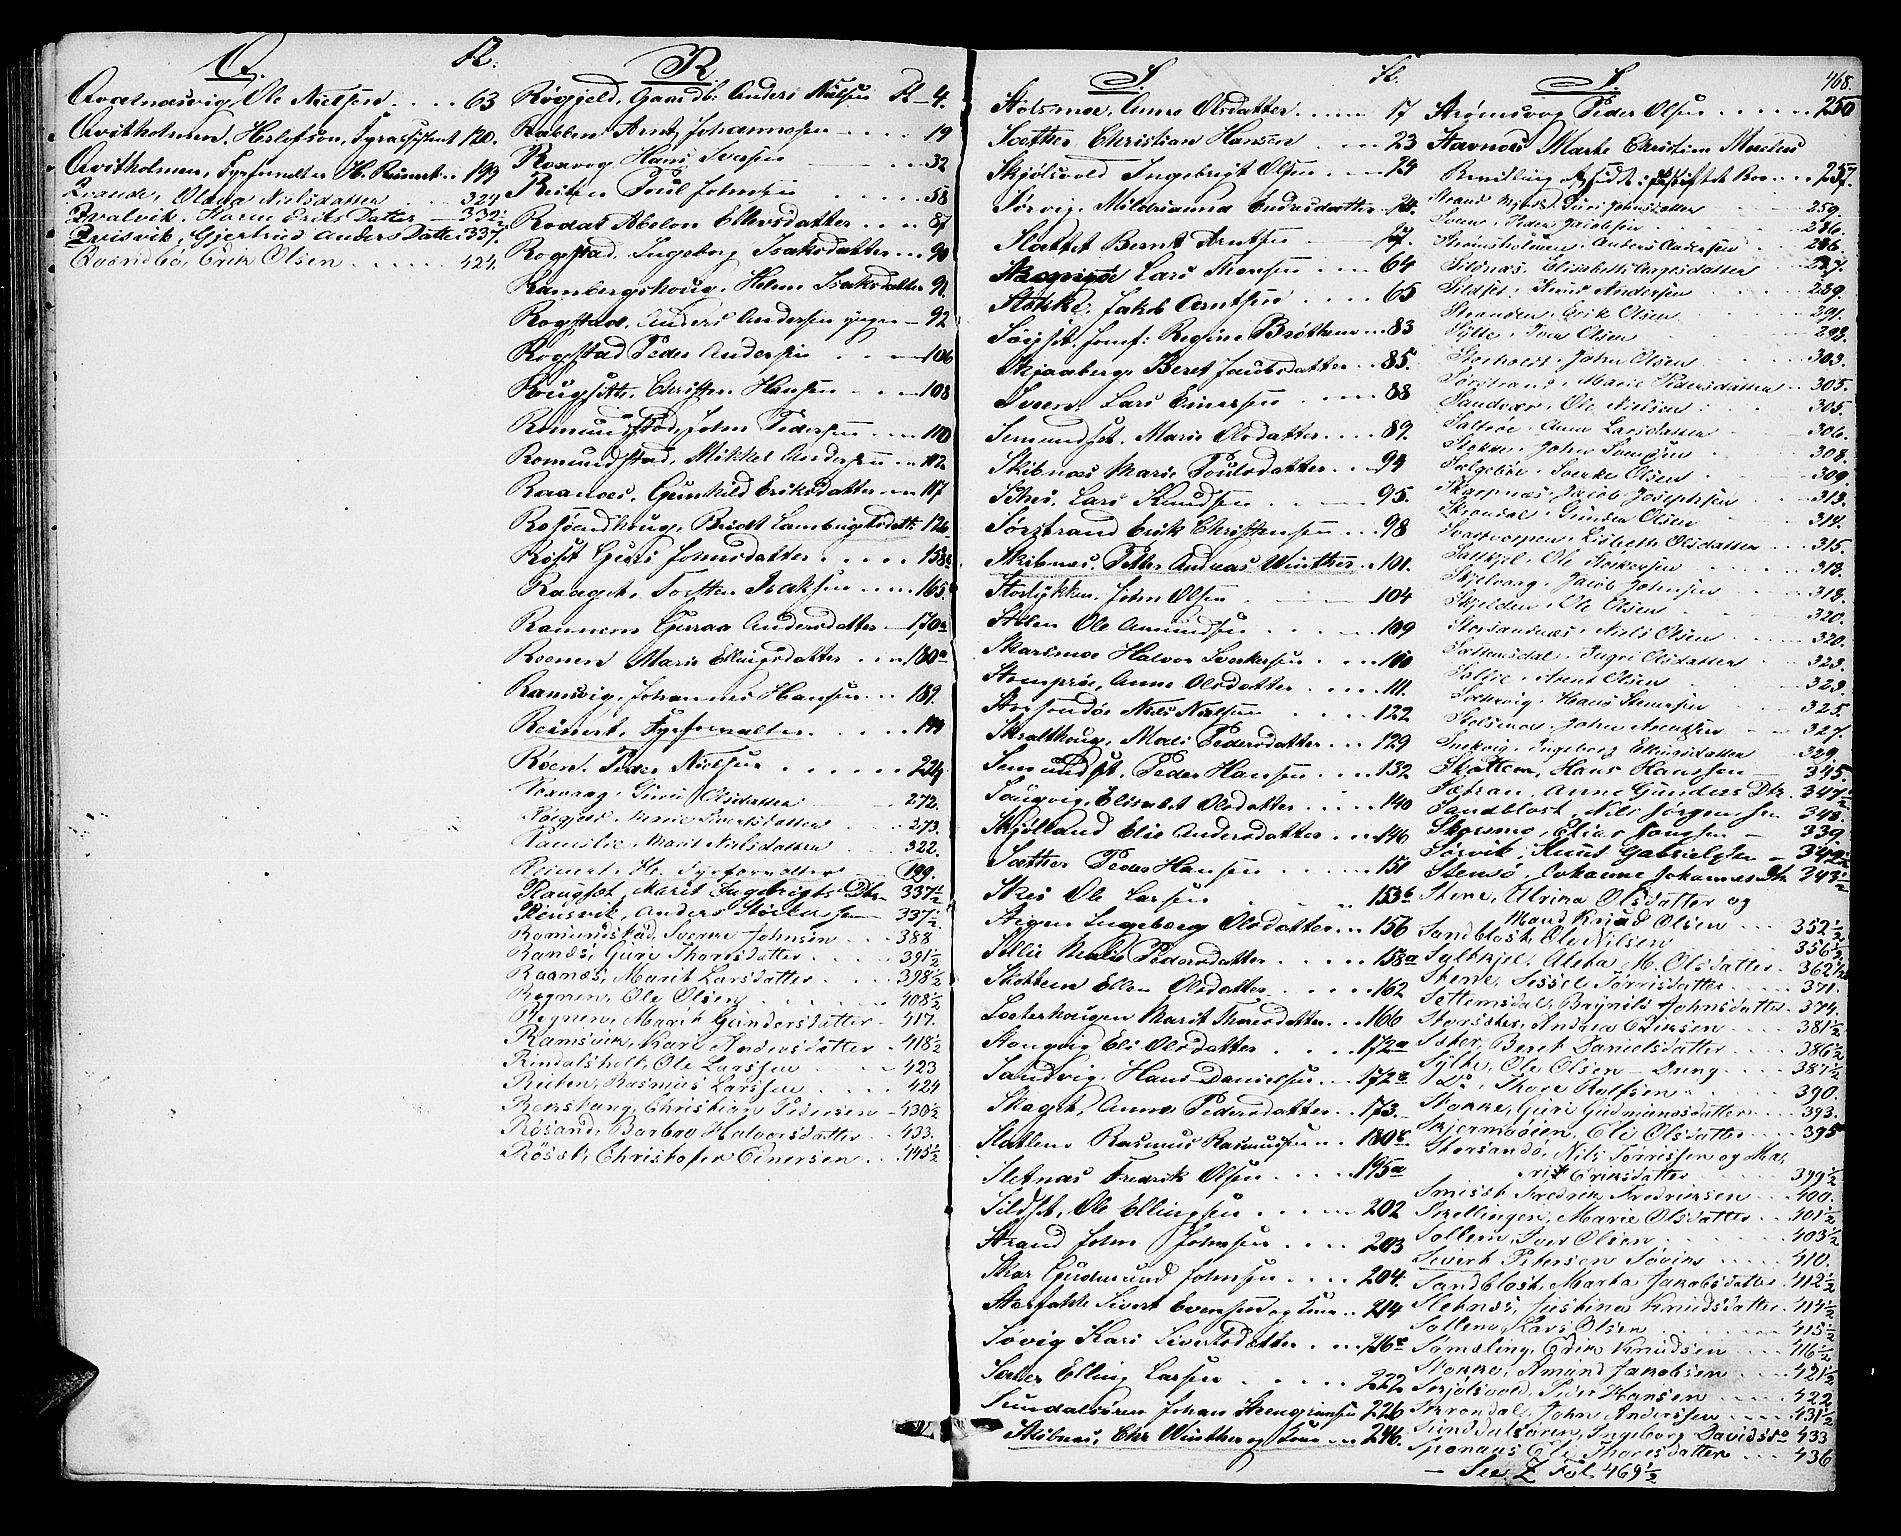 Q. Fl.
Qvalnæsvig, Ole Nielsen . . . . 63
Qvitholmen, Herlofson, Fyrassistent 120.
Qvitholmen, Fyrforvalter H. Reinert . . 199
Qvande, Olava Nielsdatter . . . 324
Qvalvik, Karen Eriks Datter — 332½
Qvisvik, Gjertrud Anders Datter 337½
Qvendbø, Erik Olsen . . . . . 424.
R.
Røgjeld, Gaardb: Anders Nielsen Fl — 4.
Rabben Arnt Johannesen . . . 19
Roxvog Hans Iversen . . . 32
Reiten Poul Johnsen . . . 58
Rodal Abelon Ellevsdatter . . . 87
Rogstad, Ingeborg Isaksdatter . . . 90
Rambergshoug, Helene Isaksdatter 91.
Rogstad, Anders Andersen yngre — 92
Rogstad Peder Andersen . . . 106
Rougset, Christen Hansen . . . 108
Romundstad, John Pedersen . . . 110
Romundstad, Mikkel Andersen . . . 112
Raanæs, Gunhild Eriksdatter . . . 117
Røsandhoug, Beret Lambrigtsdatt: 126
Røsst Guri Johnsdatter . . . . . 158
Raaget, Torsten Isaksen . . . 165.
Rannem Guraa Andersdatter — 170a
Roenen Marie Ellingsdatter . . . 180a
Ramsvig, Johannes Hansen . . . 189.
Reinert, Fyrforvalter . . . . 199
Röen, Peder Nielsen . . . . . . 224
Roxvaag, Guri Olsdatter 272.
Røgjeld, Marie Sivertsdatter . . . 273.
Ramslie, Marit Nielsdatter 322.
Reinert, H. Fyrforvalter 199.
Raugset, Marit Ingebrigts Dtr 337½
Rensvik, Anders Størkersen 337½
Romundstad, Sverke Johnsen . . . 388
Rands, Guri Thoresdatter . . . . 391½
Raanæs, Marit Larsdatter . . . . 398½
Rognen, Ole Olsen . . . . . 408½
Rognen, Marit Gundersdatter — 417.
Ramsvik, Kari Andersdatter . . . 418½
Rindalsholt, Ole Larssen . . . 423
Reiten, Rasmus Larssen . . . . 424
Rokstang, Christian Pedersen — 430½
Røsand, Barbro Halvorsdatter . . . 433.
Rössst, Christofer Einersen . . . 445½
S. Fl.
Stolsmoe, Anne Olsdatter . . . . 17
Sæther Christian Hansen . . . 23
Skjølsvold Ingebrigt Olsen . . . 24
Sørvig, Mildrianna Endresdatter 24.
Slattet Bernt Arntsen — 47.
Lars Thoresen . . . 64
Stokke, Jakob Arntsen . . . . 65
Søiset Jomf: Regine Brøthen . . . 83
Skjaaberg Beret Jacobsdatter . . 85.
Sveen, Lars Einersen . . . . 88
Semundset, Marie Olsdatter . . . . 89.
Skibnæs Marie Poulsdatter . . . 94
Lars Knudsen . . . 95.
Sørstrand Erik Christensen . . . 98
Skibnæs, Petter Andreas Winther . . 101.
Storlykken, John Olsen . . . 104
Stolen Ole Amundsen . . . . 109
Skarsmoe Halvor Sverkesen . . . 110
Stomprøe, Anne Olsdatter . . . . 111.
Storsandøe Niels Nielsen . . . . 122
Skralthoug, Mali Pedersdatter . . . 129
Semundset, Peder Hansen . . . 132
Saugvig, Elisabet Olsdatter . . . 140
Skjølland Elie Andersdatter . . . 146
Sæther Peder Hansen . . . . 151
Skei Ole Larsen . . . 153b
Stigen Ingeborg Olsdatter . . . 156
Sellie Malie Pedersdatter . . . . 158a
Skottem Ellen Olsdatter . . . . 162
Sæterhaugen Marit Thoresdatter . . . 166
Stangvig Eli Olsdatter . . . 172a
Sandvig, Hans Danielsen . . . 172c
Skaget, Anne Pedersdatter . . . 173.
Slatlem Rasmus Rasmussen . . . 180c
Sletnæs Fredrik Olsen . . . . 195a
Sildset, Ole Ellingsen . . . . . 202
Strand John Johnsen . . . . 203
Skar Gudmund Johnsen . . . . 204.
Storfolde Sivert Evensen og Kone . . 214
Søvig Kari Sivertsdatter . . . . 216c
Sæter Elling Larsen . . . . . 222
Sundalsøren Johan Steengrimsen 226
Skibnæs, Chr. Winther og Kone . . . 246.
468.
S.
Strømsvog Peder Olsen . . . . . 250
Stavnæs Marte Christine Møchus
Bevilling . . . 257.
Strand, Guri Johnsdatter 259.
Sveen, Peder Jacobsen 286.
Steinsholmen, Anders Andersen 286.
Sildnæs, Elisabeth Larsdatter 287.
Sildset, Knud Andersen 289.
Stranden, Erik Olsen 291.
Sylte, Iver Olsen 298.
Storholt, John Olsen 303.
Sørstrand, Marie Pedersdatter 305.
Sandvær, Ole Nielsen . . . 305.
Saltrøe, Anne Larsdatter 306.
Stokke, John Svendsen 308.
Salgebøe, Sverke Olsen 309.
Skarpnæs, Jacob Josephsen 313.
Skrondal, Gunder Olsen 314.
Lisbeth Olsdatter . . . 315.
Saltkjel, Ole Størkersen 318.
Skjelvaag, Jacob Johnsen 318.
Skjelden, Ole Olsen 320.
Storsandnæs, Niels Olsen 320.
Settemsdal, Ingri Olsdatter 323.
Sollie, Arent Olsen 323.
Hans Steinersen 325.
Stolsmoe, John Arentsen 327.
Snekvig, Ingeborg Ellingsdatter 329.
Skottem, Hans Hanssen — 345.
Sæfran, Anne Gunders Dtr. 347½
Sandblost, Nils Jørgensen 348.
Skarsmo, Elias Jonsen — 339.
Sørvik, Knut Gabrielsen — 342½
Stensø, Johanne Johannes Dtr 343½
Stene, Ulrika Olsdatter og
Mand Knud Olsen . . . 352½
Sandblost, Ole Nilsen 356½
Syltkjel, Aleta M. Olsdatter . . 362½
Stene, Sissel Tørrisdatter . . . . 371.
Settemsdal, Brynild Johnsdatter . 374.
Storsæter, Andrea Eriksen . . . 381½
Sæter, Beret Danielsdatter . . . 386½
Sylte, Ole Olsen — Dreng . . . 387½
Do, Thore Rolfsen . . . . . 390.
Stokke, Guri Gudmundsdatter . . . 393.
Skjermøien, Eli Olsdatter . . . . 395
Storsandø, Nils Tørrissen og Ma-
rit Eriksdatter . . . . 399½
Smisst Fredrik Fredriksen . . . 400.
Skellingen, Marie Olsdatter . . . 401½
Sollem, Iver Olsen . . . . . 403½
Sivert Petersen Søvik . . . . 410.
Sandblost, Marta Jakobsdatter . 412½
Sletnæs, Justina Knudsdatter . 414½
Sollem, Lars Olsen . . . . . . 415½
Sømeling, Erik Knudsen . . . . 416½
Stokke, Amund Jakobsen . . . . 421½
Skjølsvold, Peder Hansen . . . . 422
Skrondal, John Anderssen . . . . 431½
Sunddalsøren, Ingeborg Davidsd. 433
Sponaas Eli Thoresdatter . . . 436
— See Z Fol. 469½